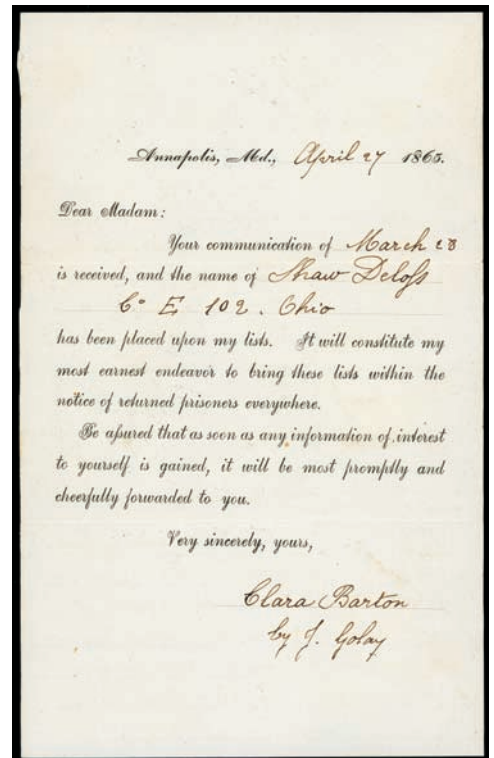 Annapolis, Md., April 27 1865.
Dear Madam:
Your communication of March 28
is received, and the name of Shaw Deloss
Co E 102. Ohio
has been placed upon my lists. It will constitute my
most earnest endeavor to bring these lists within the
notice of returned prisoners everywhere.
Be assured that as soon as any information of interest
to yourself is gained, it will be most promptly and
cheerfully forwarded to you.
Very sincerely, yours,
Clara Barton
by J. Golay